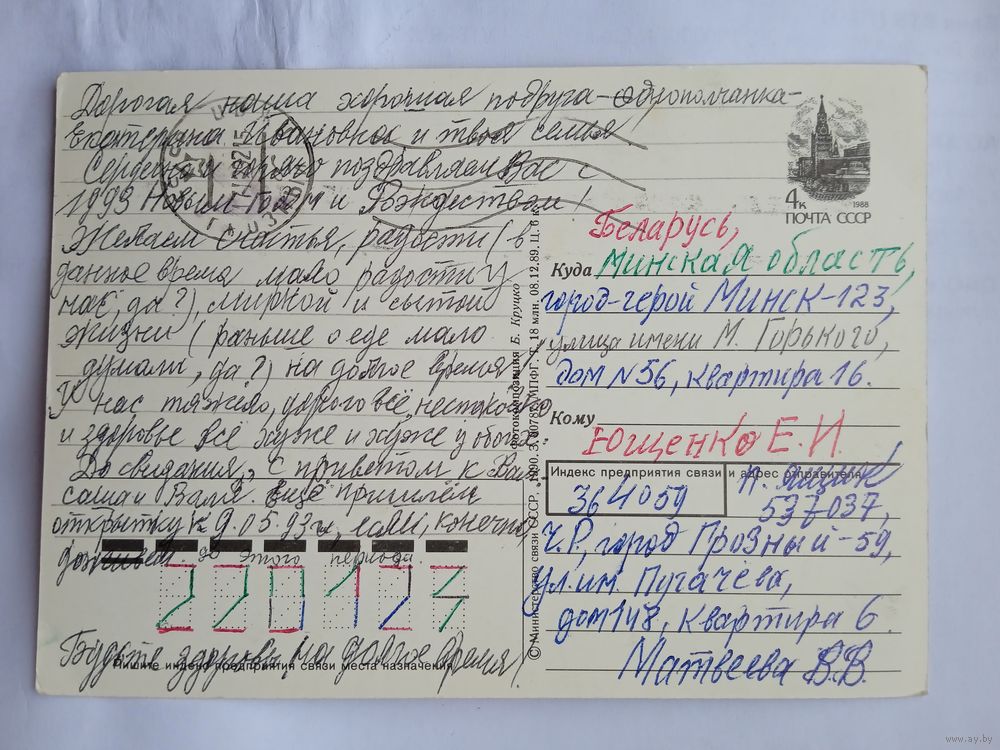 Дорогая наша хорошая подруга-однополчанка-
Екатерина Ивановна и твоя семья!
Сердечно и горячо поздравляем Вас с
1993 Новым Годом и Рождеством!
Желаем счастья, радости (в
данное время мало радости у
нас, да?), мирной и сытой
жизни (раньше о еде мало
думали, да?) на долгое время!
У нас тяжело, дорого всё, неспокойно
и здоровье всё хуже и хуже у обоих.
До свидания, с приветом к Вам
Саша и Валя. Ещё пришлём
открытку к 9.05.93г, если, конечно,
доживём до этого периода.
220123
Будьте здоровы на долгое время!
Пишите индекс предприятия связи места назначения
© Министерство связи СССР. 1990. З. 00785. МПФГ. Т. 18 млн. 08.12.89. Ц. 6 к.
Фотокомпозиция Б. Круцко
4к
1988
ПОЧТА СССР
Беларусь,
Куда Минская область,
город-герой Минск-123,
улица имени М. Горького,
дом N56, квартира 16.
Кому Ющенко Е.И.
Индекс предприятия связи и адрес отправителя
364059
п. ящик
537037,
Ч.Р., город Грозный-59,
ул.им. Пугачёва,
дом 148, квартира 6
Матвеева В.В.
www.ay.by